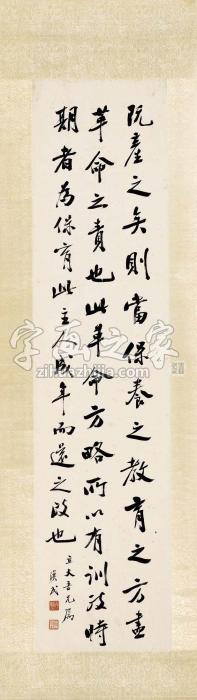 既產之矣則當保養之教育之方盡
革命之責也此革命方略所以有訓政時
期者為保育此主人成年而還之政也
立夫吾兄屬
漢民
字画之家
zihuazhijia.com